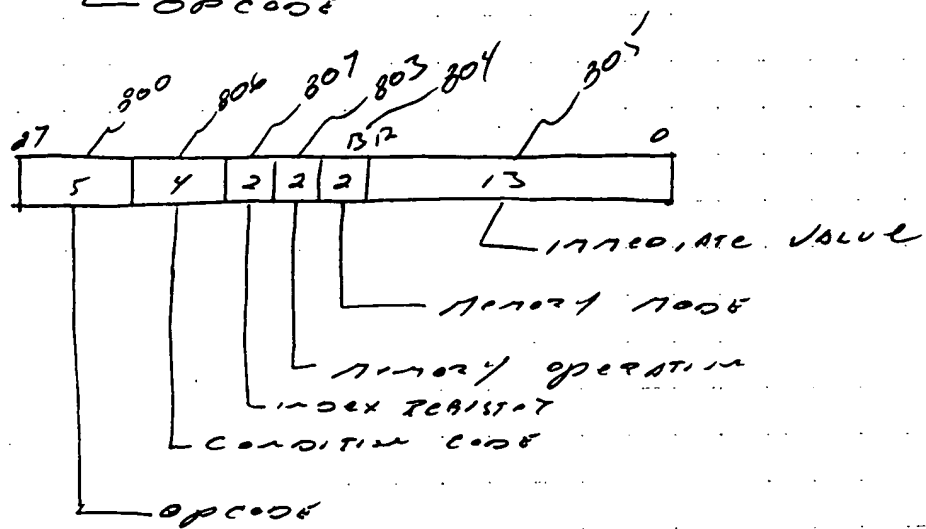 OPCODE
800 806 807 803 804 805
27 13 12 0
5 4 2 2 2 13
IMMEDIATE VALUE
MEMORY MODE
MEMORY OPERATION
INDEX REGISTER
CONDITION CODE
OPCODE